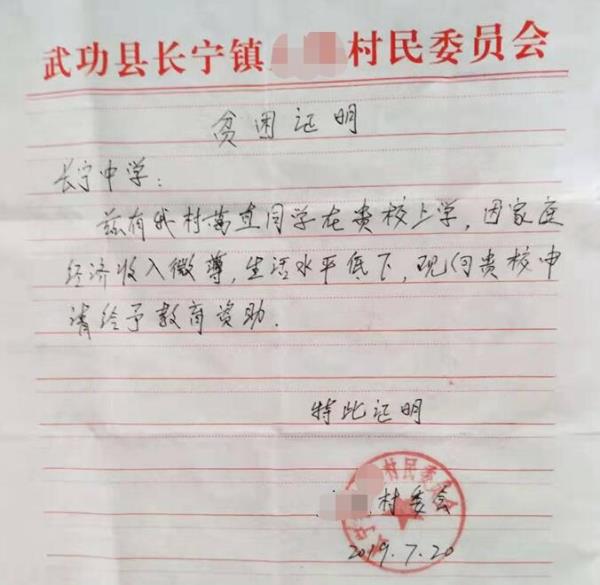 武功县长宁镇 村民委员会
贫困证明
长宁中学：
兹有我村 同学在贵校上学，因家庭
经济收入微薄，生活水平低下，现向贵校申
请给予教育资助.
特此证明
村民委员会
村委会
2019.7.20